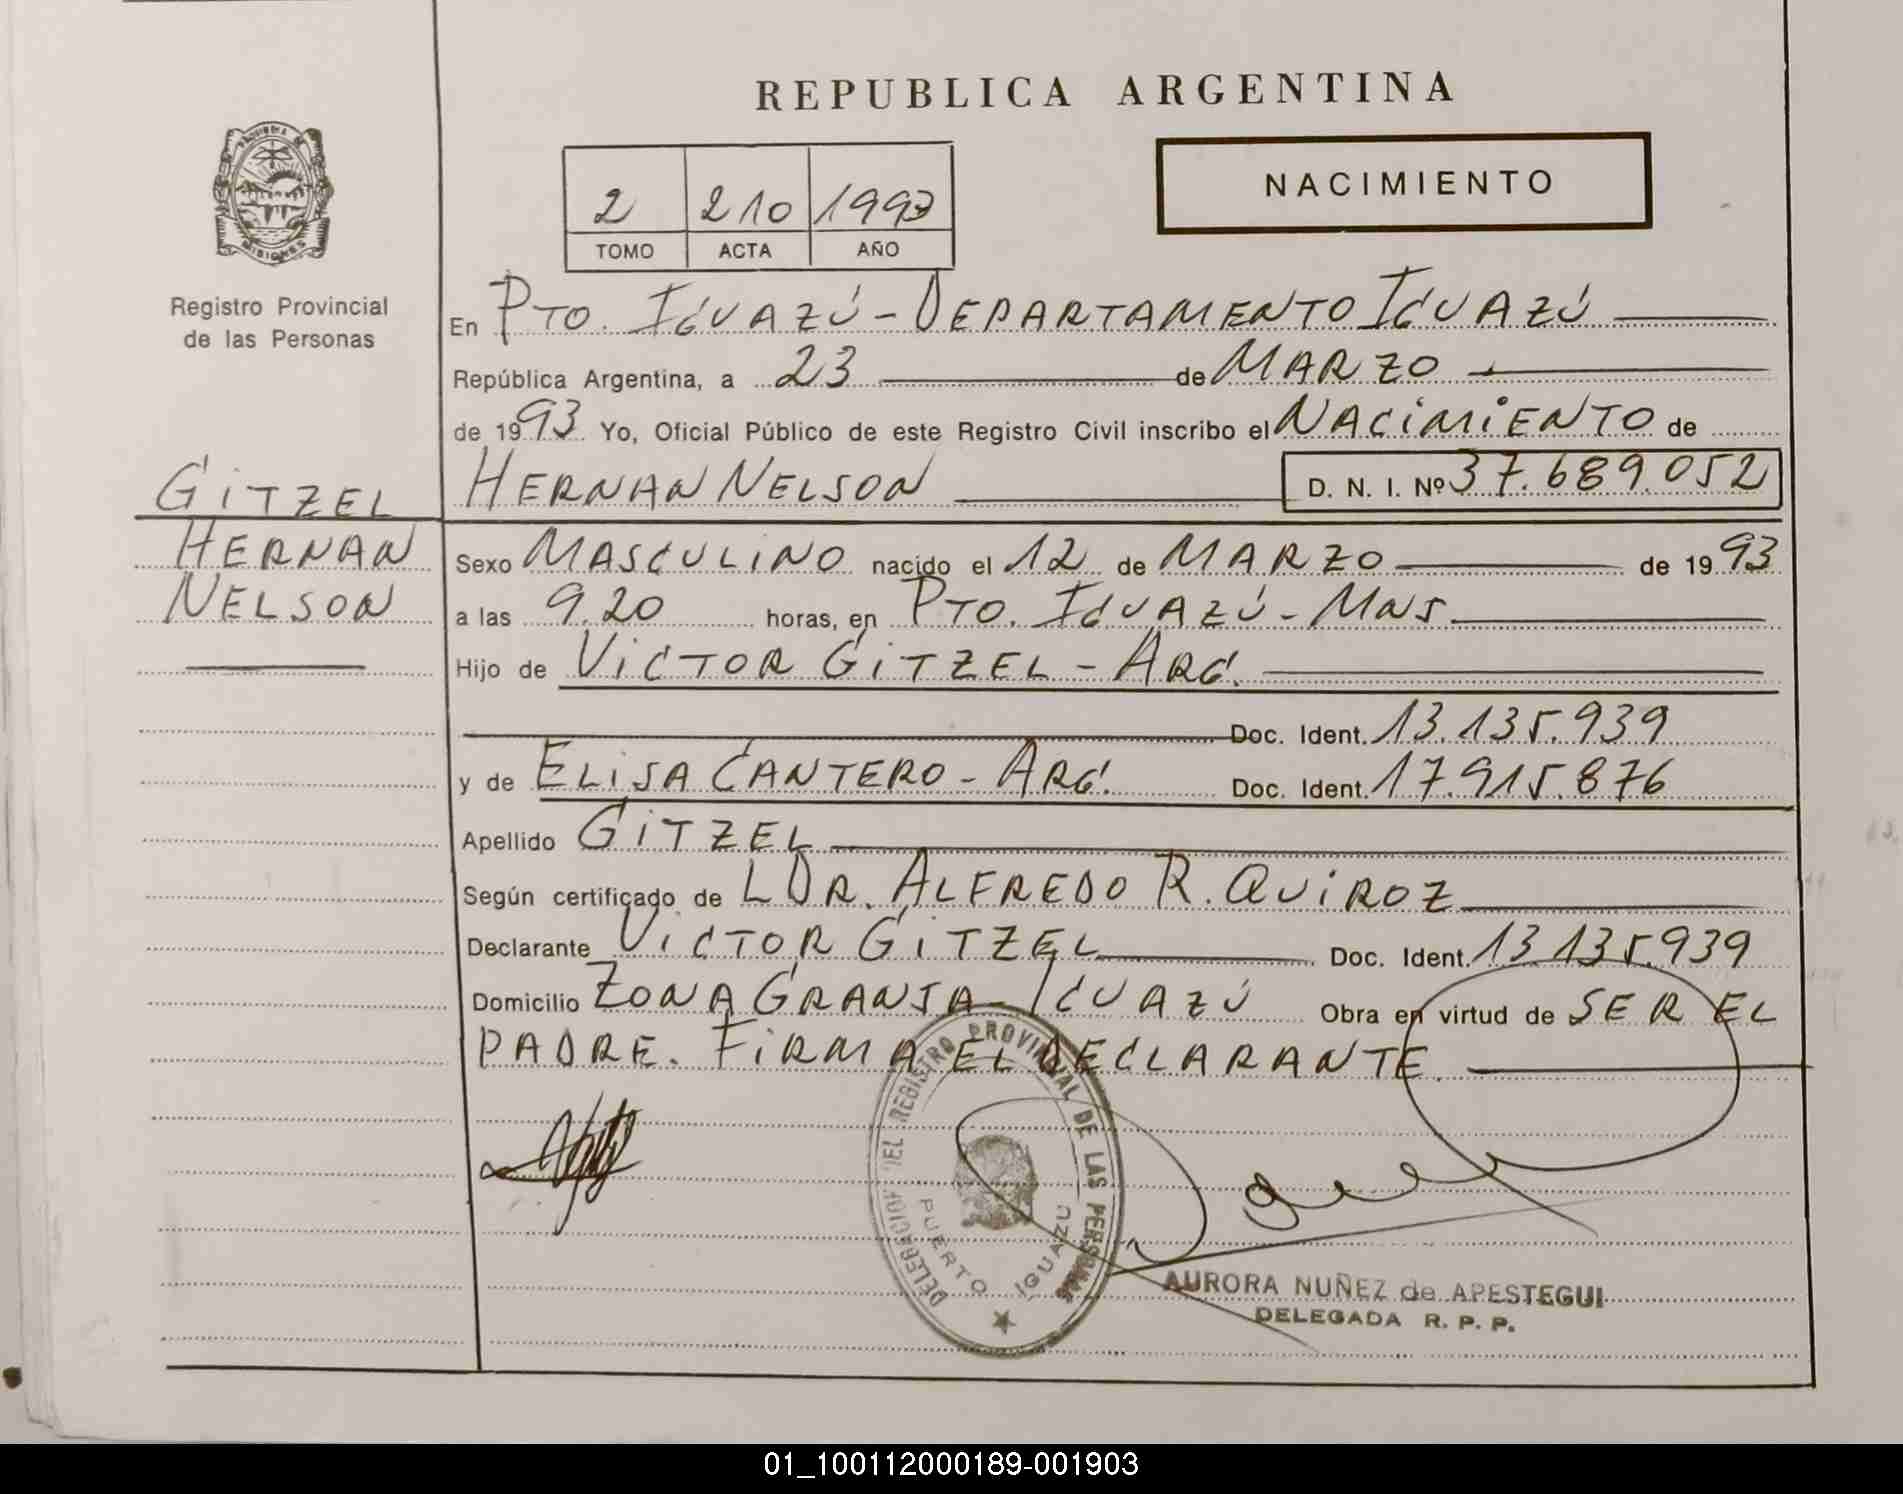 REPUBLICA ARGENTINA
MISIONES
Registro Provincial
de las Personas
NACIMIENTO
2 210 1993
TOMO ACTA AÑO
En PTO. IGUAZÚ - DEPARTAMENTO IGUAZÚ
República Argentina, a 23 de MARZO
de 1993 Yo, Oficial Público de este Registro Civil inscribo el NACIMIENTO de
HERNAN NELSON D. N. I. Nº 37.689.052
GITZEL
HERNAN
NELSON
Sexo MASCULINO nacido el 12 de MARZO de 1993
a las 9.20 horas, en PTO. IGUAZÚ - MNS
Hijo de VICTOR GITZEL - ARG.
Doc. Ident. 13.135.939
y de ELISA CANTERO - ARG. Doc. Ident. 17.915.876
Apellido GITZEL
Según certificado de L DR. ALFREDO R. QUIROZ
Declarante VICTOR GITZEL Doc. Ident. 13.135.939
Domicilio ZONA GRANJA - IGUAZÚ Obra en virtud de SER EL
PADRE. FIRMA EL DECLARANTE.
DELEGACION DEL REGISTRO PROVINCIAL DE LAS PERSONAS
PUERTO IGUAZU
AURORA NUÑEZ de APESTEGUI
DELEGADA R. P. P.
01_100112000189-001903